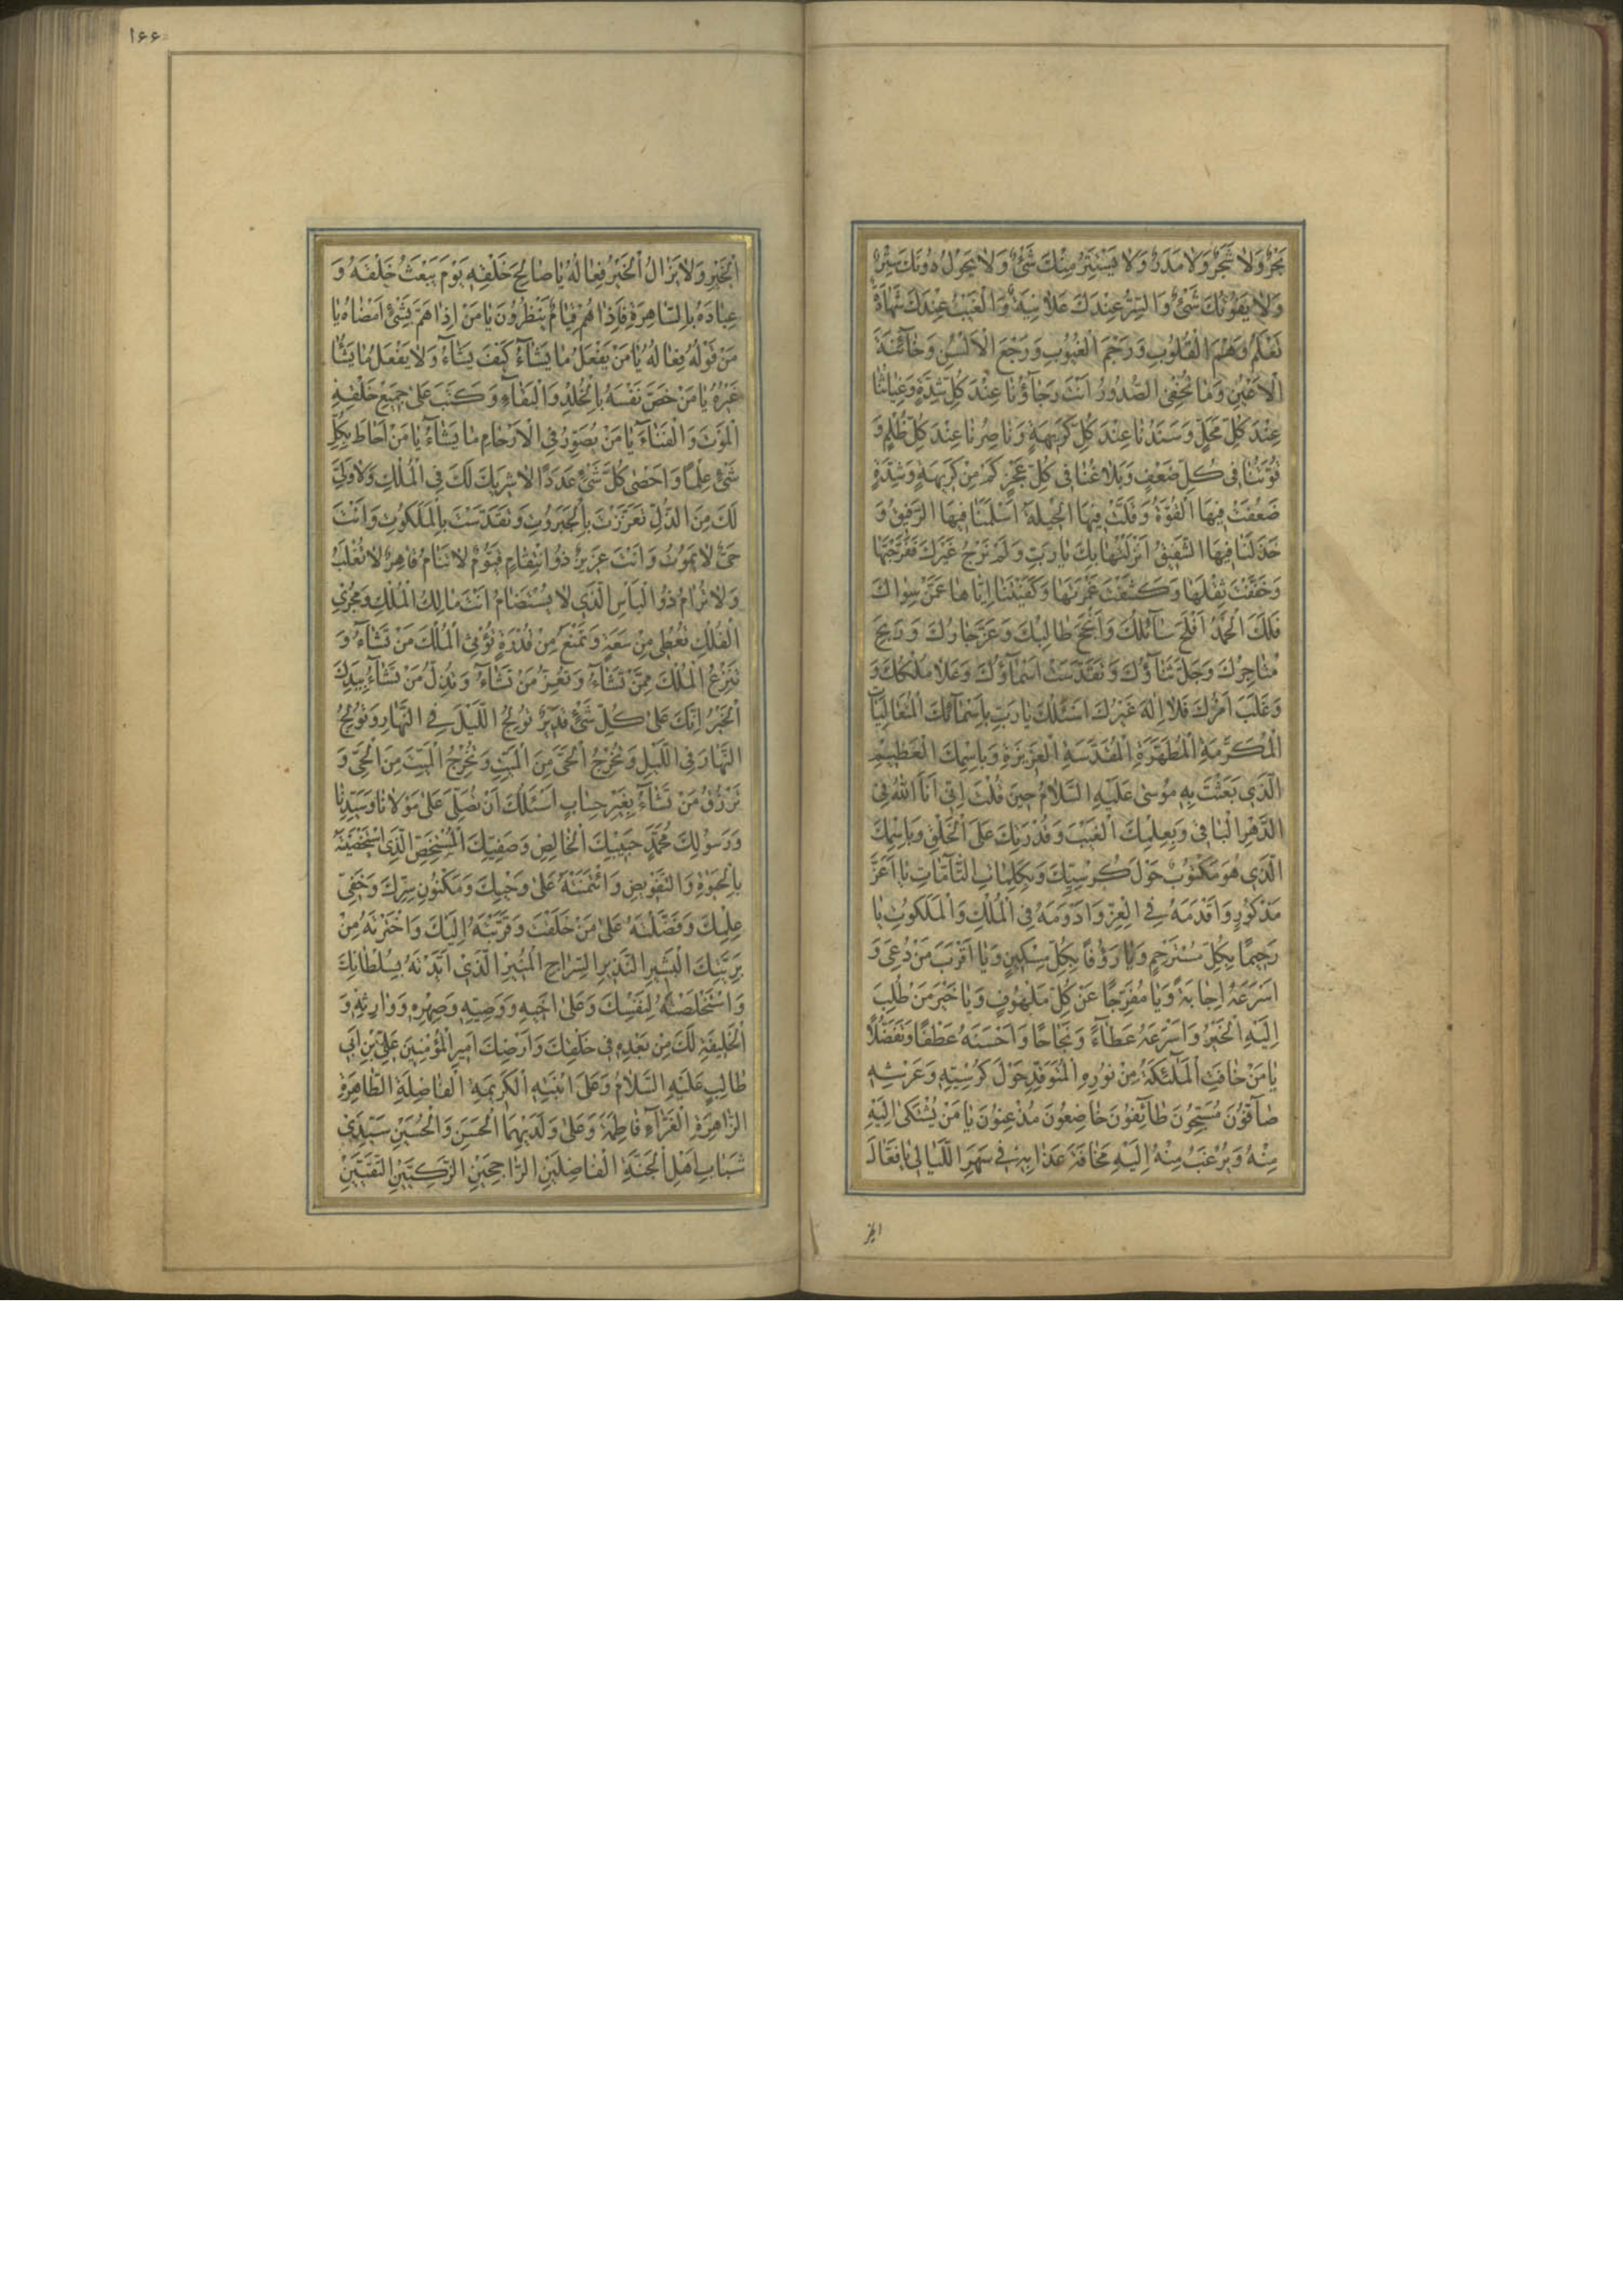 بَحْرٌ وَلا شَجَرٌ وَلا مَدَرٌ وَلا يَسْتَتِرُ مِنْكَ شَيْءٌ وَلا يَحُولُ دُونَكَ سِتْرٌ
وَلا يَفُوتُكَ شَيْءٌ وَالسِّرُّ عِنْدَكَ عَلانِيَةٌ وَالْغَيْبُ عِنْدَكَ شَهادَةٌ
تَعْلَمُ وَهْمَ الْقُلُوبِ وَرَجْمَ الْغُيُوبِ وَرَجْعَ الْأَلْسُنِ وَخآئِنَةَ
الْأَعْيُنِ وَما تُخْفِي الصُّدُورُ أَنْتَ رَجاؤُنا عِنْدَ كُلِّ شِدَّةٍ وَغِياثُنا
عِنْدَ كُلِّ مَحْلٍ وَسَنَدُنا عِنْدَ كُلِّ كَرِيهَةٍ وَناصِرُنا عِنْدَ كُلِّ ظُلْمٍ وَ
قُوَّتُنا فِي كُلِّ ضَعْفٍ وَبَلاغُنا فِي كُلِّ عَجْزٍ كَمْ مِنْ كَرِيهَةٍ وَشِدَّةٍ
ضَعُفَتْ فِيهَا الْقُوَّةُ وَقَلَّتْ فِيهَا الْحِيلَةُ أَسْلَمَنا فِيهَا الرَّفِيقُ وَ
خَذَلَنا فِيهَا الشَّفِيقُ أَنْزَلْتُها بِكَ يا رَبِّ وَلَمْ نَرْجُ غَيْرَكَ فَفَرَّجْتَها
وَخَفَّفْتَ ثِقْلَها وَكَشَفْتَ غَمْرَتَها وَكَفَيْتَنا إِيّاها عَمَّنْ سِواكَ
فَلَكَ الْحَمْدُ أَفْلَحَ سآئِلُكَ وَأَنْجَحَ طالِبُكَ وَعَزَّ جارُكَ وَرَبِحَ
مُتاجِرُكَ وَجَلَّ ثَنآؤُكَ وَتَقَدَّسَتْ أَسْمآؤُكَ وَعَلا مُلْكُكَ وَ
وَغَلَبَ أَمْرُكَ فَلا إِلهَ غَيْرُكَ أَسْئَلُكَ يا رَبِّ بِأَسْمآئِكَ الْمُتَعالِياتِ
الْمُكَرَّمَةِ الْمُطَهَّرَةِ الْمُقَدَّسَةِ الْعَزِيزَةِ وَبِاسْمِكَ الْعَظِيمِ
الَّذِي بَعَثْتَ بِهِ مُوسى عَلَيْهِ السَّلامُ حِينَ قُلْتَ إِنِّي أَنَا اللهُ فِي
الدَّهْرِ الْباقِي وَبِعِلْمِكَ الْغَيْبَ وَقُدْرَتِكَ عَلَى الْخَلْقِ وَبِاسْمِكَ
الَّذِي هُوَ مَكْتُوبٌ حَوْلَ كُرْسِيِّكَ وَبِكَلِماتِكَ التّآمّاتِ يا أَعَزَّ
مَذْكُورٍ وَأَقْدَمَهُ فِي الْعِزِّ وَأَدْوَمَهُ فِي الْمُلْكِ وَالْمَلَكُوتِ يا
رَحِيمًا بِكُلِّ مُسْتَرْحِمٍ وَيا رَؤُفًا بِكُلِّ مِسْكِينٍ وَيا أَقْرَبَ مَنْ دُعِيَ وَ
أَسْرَعَهُ إِجابَةً وَيا مُفَرِّجًا عَنْ كُلِّ مَلْهُوفٍ وَيا خَيْرَ مَنْ طُلِبَ
إِلَيْهِ الْخَيْرُ وَأَسْرَعَهُ عَطآءً وَنَجاحًا وَأَحْسَنَهُ عَطْفًا وَتَفَضُّلًا
يا مَنْ خافَتِ الْمَلٰئِكَةُ مِنْ نُورِهِ الْمُتَوَقِّدِ حَوْلَ كُرْسِيِّهِ وَعَرْشِهِ
صآفُّونَ مُسَبِّحُونَ طآئِفُونَ خاضِعُونَ مُذْعِنُونَ يا مَنْ يُشْتَكى إِلَيْهِ
مِنْهُ وَيُرْغَبُ مِنْهُ إِلَيْهِ مَخافَةَ عَذابِهِ فِي سَهَرِ اللَّيالِي يا فَعّالَ
الخیر
١۶۶
الْخَيْرِ وَلا يَزالُ الْخَيْرُ فِعالَهُ يا صالِحَ خَلْقِهِ يَوْمَ يَبْعَثُ خَلْقَهُ وَ
عِبادَهُ بِالسّاهِرَةِ فَإِذا هُمْ قِيامٌ يَنْظُرُونَ يا مَنْ إِذا هَمَّ بِشَيْءٍ أَمْضاهُ يا
مَنْ قَوْلُهُ فِعالُهُ يا مَنْ يَفْعَلُ ما يَشآءُ كَيْفَ يَشآءُ وَلا يَفْعَلُ ما يَشآءُ
غَيْرُهُ يا مَنْ خَصَّ نَفْسَهُ بِالْخُلْدِ وَالْبَقآءِ وَكَتَبَ عَلى جَمِيعِ خَلْقِهِ
الْمَوْتَ وَالْفَنآءَ يا مَنْ يُصَوِّرُ فِي الْأَرْحامِ ما يَشآءُ يا مَنْ أَحاطَ بِكُلِّ
شَيْءٍ عِلْمًا وَأَحْصى كُلَّ شَيْءٍ عَدَدًا لا شَرِيكَ لَكَ فِي الْمُلْكِ وَلا وَلِيَّ
لَكَ مِنَ الذُّلِّ تَعَزَّزْتَ بِالْجَبَرُوتِ وَتَقَدَّسْتَ بِالْمَلَكُوتِ وَأَنْتَ
حَيٌّ لا تَمُوتُ وَأَنْتَ عَزِيزٌ ذُو انْتِقامٍ قَيُّومٌ لا تَنامُ قاهِرٌ لا تُغْلَبُ
وَلا تُرامُ ذُو الْبَأْسِ الَّذِي لا يُسْتَضامُ أَنْتَ مالِكُ الْمُلْكِ وَمُجْرِي
الْفُلْكِ تُعْطِي مِنْ سَعَةٍ وَتَمْنَعُ مِنْ قُدْرَةٍ تُؤْتِي الْمُلْكَ مَنْ تَشآءُ وَ
تَنْزِعُ الْمُلْكَ مِمَّنْ تَشآءُ وَتُعِزُّ مَنْ تَشآءُ وَتُذِلُّ مَنْ تَشآءُ بِيَدِكَ
الْخَيْرُ إِنَّكَ عَلى كُلِّ شَيْءٍ قَدِيرٌ تُولِجُ اللَّيْلَ فِي النَّهارِ وَتُولِجُ
النَّهارَ فِي اللَّيْلِ وَتُخْرِجُ الْحَيَّ مِنَ الْمَيِّتِ وَتُخْرِجُ الْمَيِّتَ مِنَ الْحَيِّ وَ
تَرْزُقُ مَنْ تَشآءُ بِغَيْرِ حِسابٍ أَسْئَلُكَ أَنْ تُصَلِّيَ عَلى مَوْلانا وَسَيِّدِنا
وَرَسُولِكَ مُحَمَّدٍ حَبِيبِكَ الْخالِصِ وَصَفِيِّكَ الْمُسْتَخَصِّ الَّذِي اسْتَخْصَصْتَهُ
بِالْحَيٰوةِ وَالتَّفْوِيضِ وَائْتَمَنْتَهُ عَلى وَحْيِكَ وَمَكْنُونِ سِرِّكَ وَخَفِيِّ
عِلْمِكَ وَفَضَّلْتَهُ عَلى مَنْ خَلَقْتَ وَقَرَّبْتَهُ إِلَيْكَ وَاخْتَرْتَهُ مِنْ
بَرِيَّتِكَ الْبَشِيرِ النَّذِيرِ السِّراجِ الْمُنِيرِ الَّذِي أَيَّدْتَهُ بِسُلْطانِكَ
وَاسْتَخْلَصْتَهُ لِنَفْسِكَ وَعَلى أَخِيهِ وَوَصِيِّهِ وَصِهْرِهِ وَوارِثِهِ وَ
الْخَلِيفَةِ لَكَ مِنْ بَعْدِهِ فِي خَلْقِكَ وَأَرْضِكَ أَمِيرِ الْمُؤْمِنِينَ عَلِيِّ بْنِ أَبِي
طالِبٍ عَلَيْهِ السَّلامُ وَعَلَى ابْنَتِهِ الْكَرِيمَةِ الْفاضِلَةِ الطّاهِرَةِ
الزّاهِرَةِ الْغَرّآءِ فاطِمَةَ وَعَلى وَلَدَيْهِمَا الْحَسَنِ وَالْحُسَيْنِ سَيِّدَيْ
شَبابِ أَهْلِ الْجَنَّةِ الْفاضِلَيْنِ الرّاجِحَيْنِ الزَّكِيَّيْنِ التَّقِيَّيْنِ